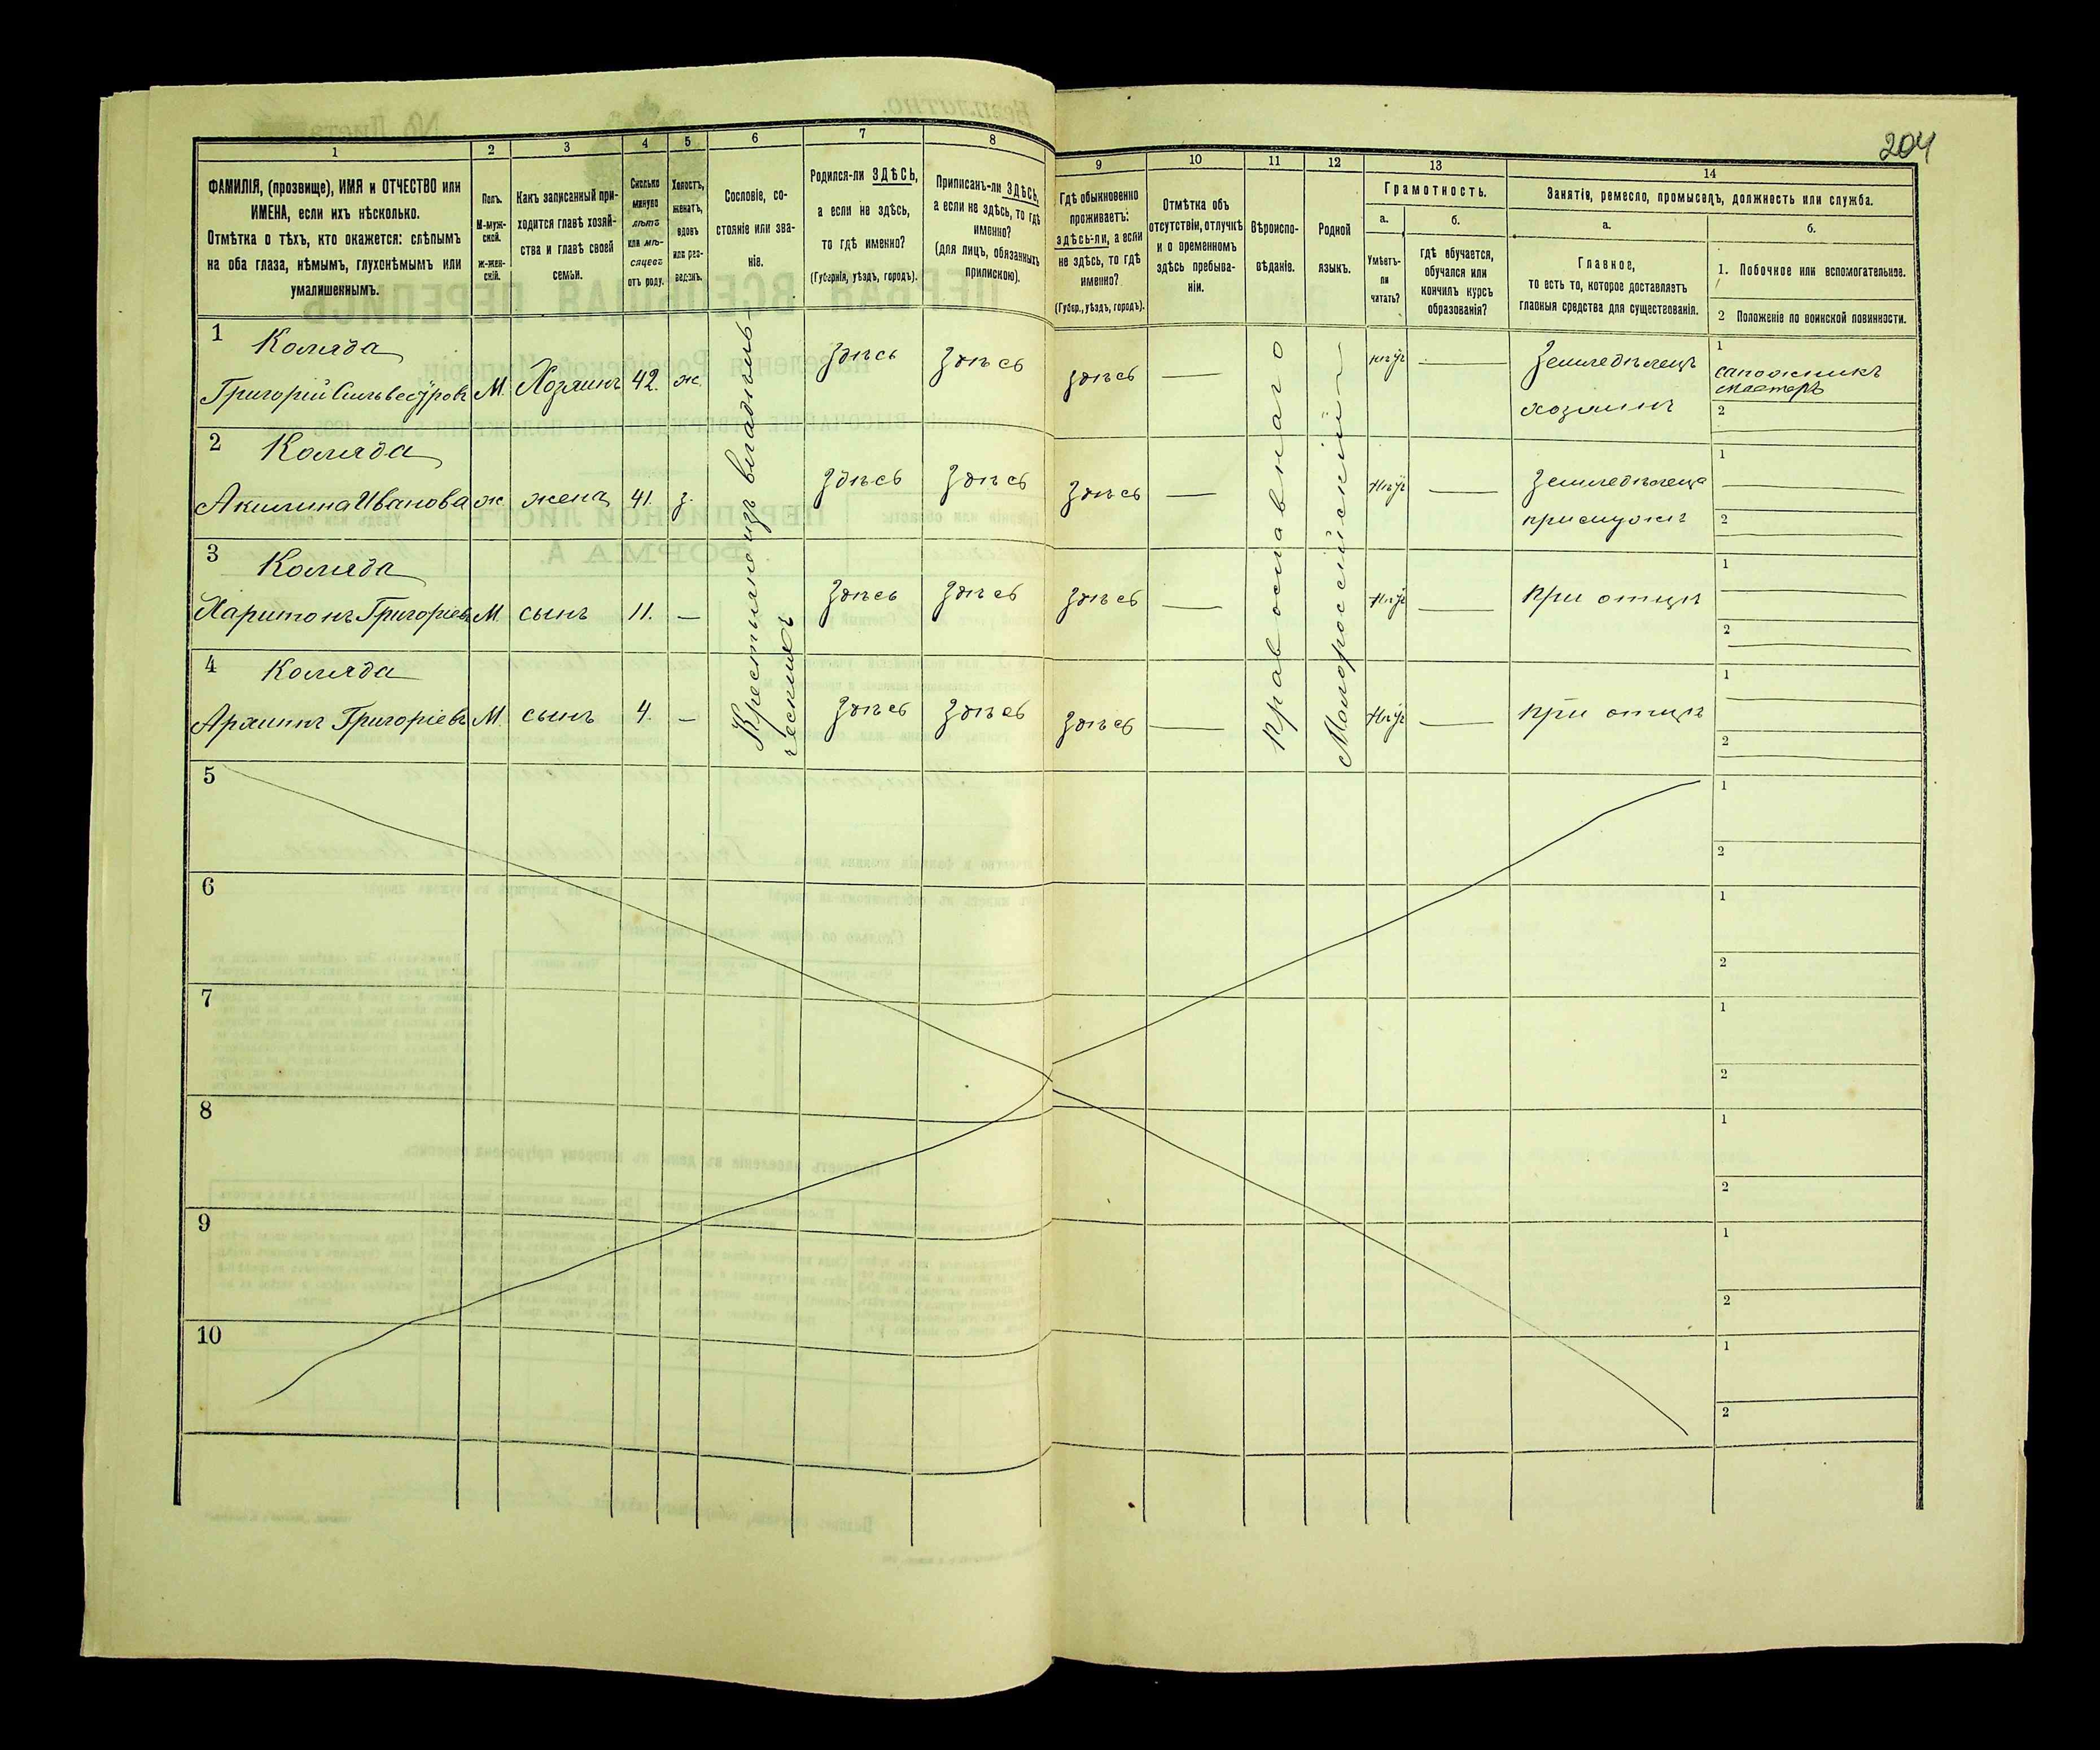 204
1
2
3
4
5
6
7
8
9
10
11
12
13
14
ФАМИЛІЯ, (прозвище), ИМЯ и ОТЧЕСТВО или
ИМЕНА, если ихъ нѣсколько.
Отмѣтка о тѣхъ, кто окажется: слѣпымъ
на оба глаза, нѣмымъ, глухонѣмымъ или
умалишеннымъ.
Полъ.
М-муж-
ской.
ж-жен-
скій.
Какъ записанный при-
ходится главѣ хозяй-
ства и главѣ своей
семьи.
Сколько
минуло
лѣтъ
или мѣ-
сяцевъ
отъ роду.
Холостъ,
женатъ,
вдовъ
или раз-
веденъ.
Сословіе, со-
стояніе или зва-
ніе.
Родился-ли ЗДѢСЬ,
а если не здѣсь,
то гдѣ именно?
(Губернія, уѣздъ, городъ).
Приписанъ-ли ЗДѢСЬ,
а если не здѣсь, то гдѣ
именно?
(для лицъ, обязанныхъ
припискою).
Гдѣ обыкновенно
проживаетъ:
здѣсь-ли, а если
не здѣсь, то гдѣ
именно?
(Губер., уѣздъ, городъ).
Отмѣтка объ
отсутствіи, отлучкѣ
и о временномъ
здѣсь пребыва-
ніи.
Вѣроиспо-
вѣданіе.
Родной
языкъ.
Грамотность.
а.
б.
Умѣетъ-
ли
читать?
гдѣ обучается,
обучался или
кончилъ курсъ
образованія?
Занятіе, ремесло, промыселъ, должность или служба.
а.
б.
Главное,
то есть то, которое доставляетъ
главныя средства для существованія.
1. Побочное или вспомогательное.
2 Положеніе по воинской повинности.
1 Коляда
Григорій Сильвестровъ М. Хозяинъ 42. ж. здѣсь здѣсь здѣсь — нѣтъ — Земледѣлецъ
хозяинъ
1
сапожникъ
мастеръ
2
2 Коляда
Акилина Иванова ж жена 41. з. здѣсь здѣсь здѣсь — нѣтъ — Земледѣлеца
при мужѣ
1
2
3 Коляда
Харитонъ Григоріевъ М. сынъ 11. — здѣсь здѣсь здѣсь — нѣтъ — при отцѣ
1
2
4 Коляда
Архипъ Григоріевъ М. сынъ 4. — здѣсь здѣсь здѣсь — нѣтъ — при отцѣ
1
2
Крестьяне изъ владѣль-
ческихъ
Православнаго
Малороссійскій
5
1
2
6
1
2
7
1
2
8
1
2
9
1
2
10
1
2